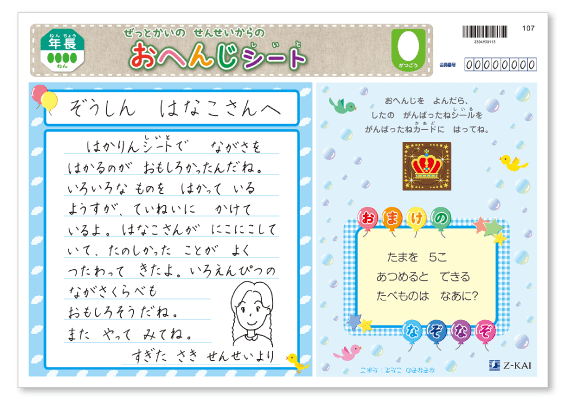 年長
ねん ちょう
ねん
ぜっとかいの せんせいからの
おへんじシート
しいと
がつごう
107
会員番号
00000000
ぞうしん はなこさんへ
はかりんシートで ながさを
しいと
はかるのが おもしろかったんだね。
いろいろな ものを はかって いる
ようすが、ていねいに かけて
いるよ。はなこさんが にこにこして
いて、たのしかった ことが よく
つたわって きたよ。いろえんぴつの
ながさくらべも
おもしろそうだね。
また やって みてね。
すぎた さき せんせいより
おへんじを よんだら、
したの がんばったねシールを
しいる
がんばったねカードに はってね。
かあど
おまけの
たまを 5こ
あつめると できる
たべものは なあに?
なぞなぞ
Z-KAI